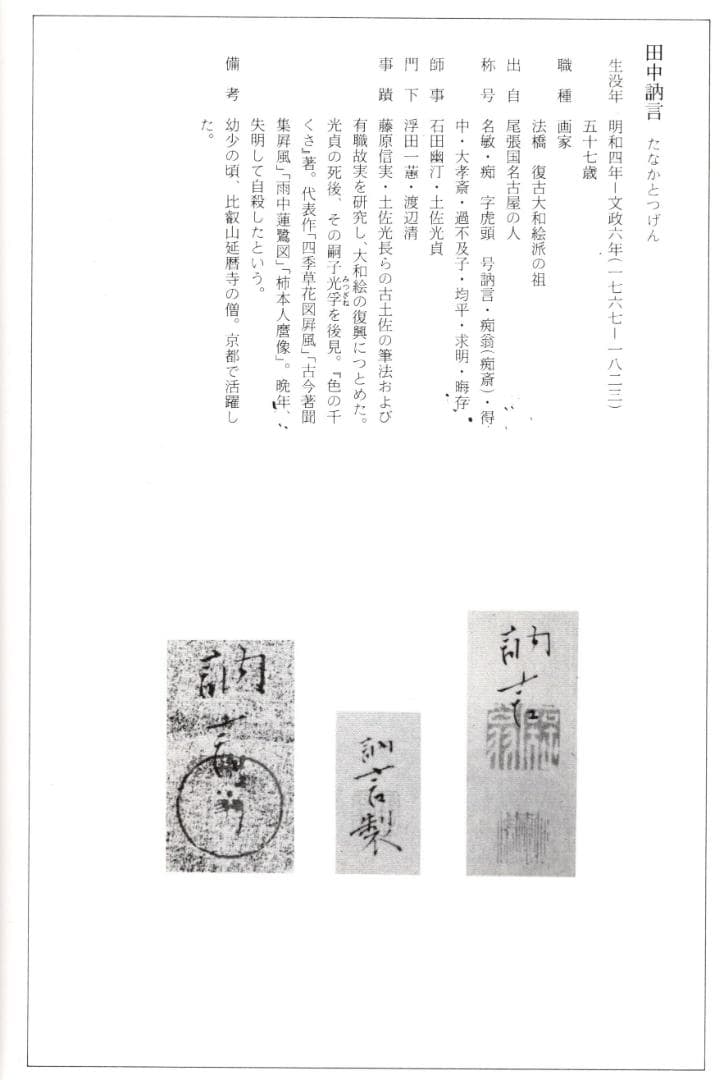 田中訥言 たなかとつげん
生没年 明和四年―文政六年(一七六七―一八二三)
五十七歳
職種 画家
法橋 復古大和絵派の祖
出自 尾張国名古屋の人
称号 名敏・痴 字虎頭 号訥言・痴翁(痴斎)・得
中・大孝斎・過不及子・均平・求明・晦存
師事 石田幽汀・土佐光貞
門下 浮田一蕙・渡辺清
事蹟 藤原信実・土佐光長らの古土佐の筆法および
有職故実を研究し、大和絵の復興につとめた。
光貞の死後、その嗣子光孚を後見。『色の千
みつざね
くさ』著。代表作「四季草花図屛風」「古今著聞
集屛風」「雨中蓮鷺図」「柿本人麿像」。晩年、
失明して自殺したという。
備考 幼少の頃、比叡山延暦寺の僧。京都で活躍し
た。
訥言
訥言製
訥言